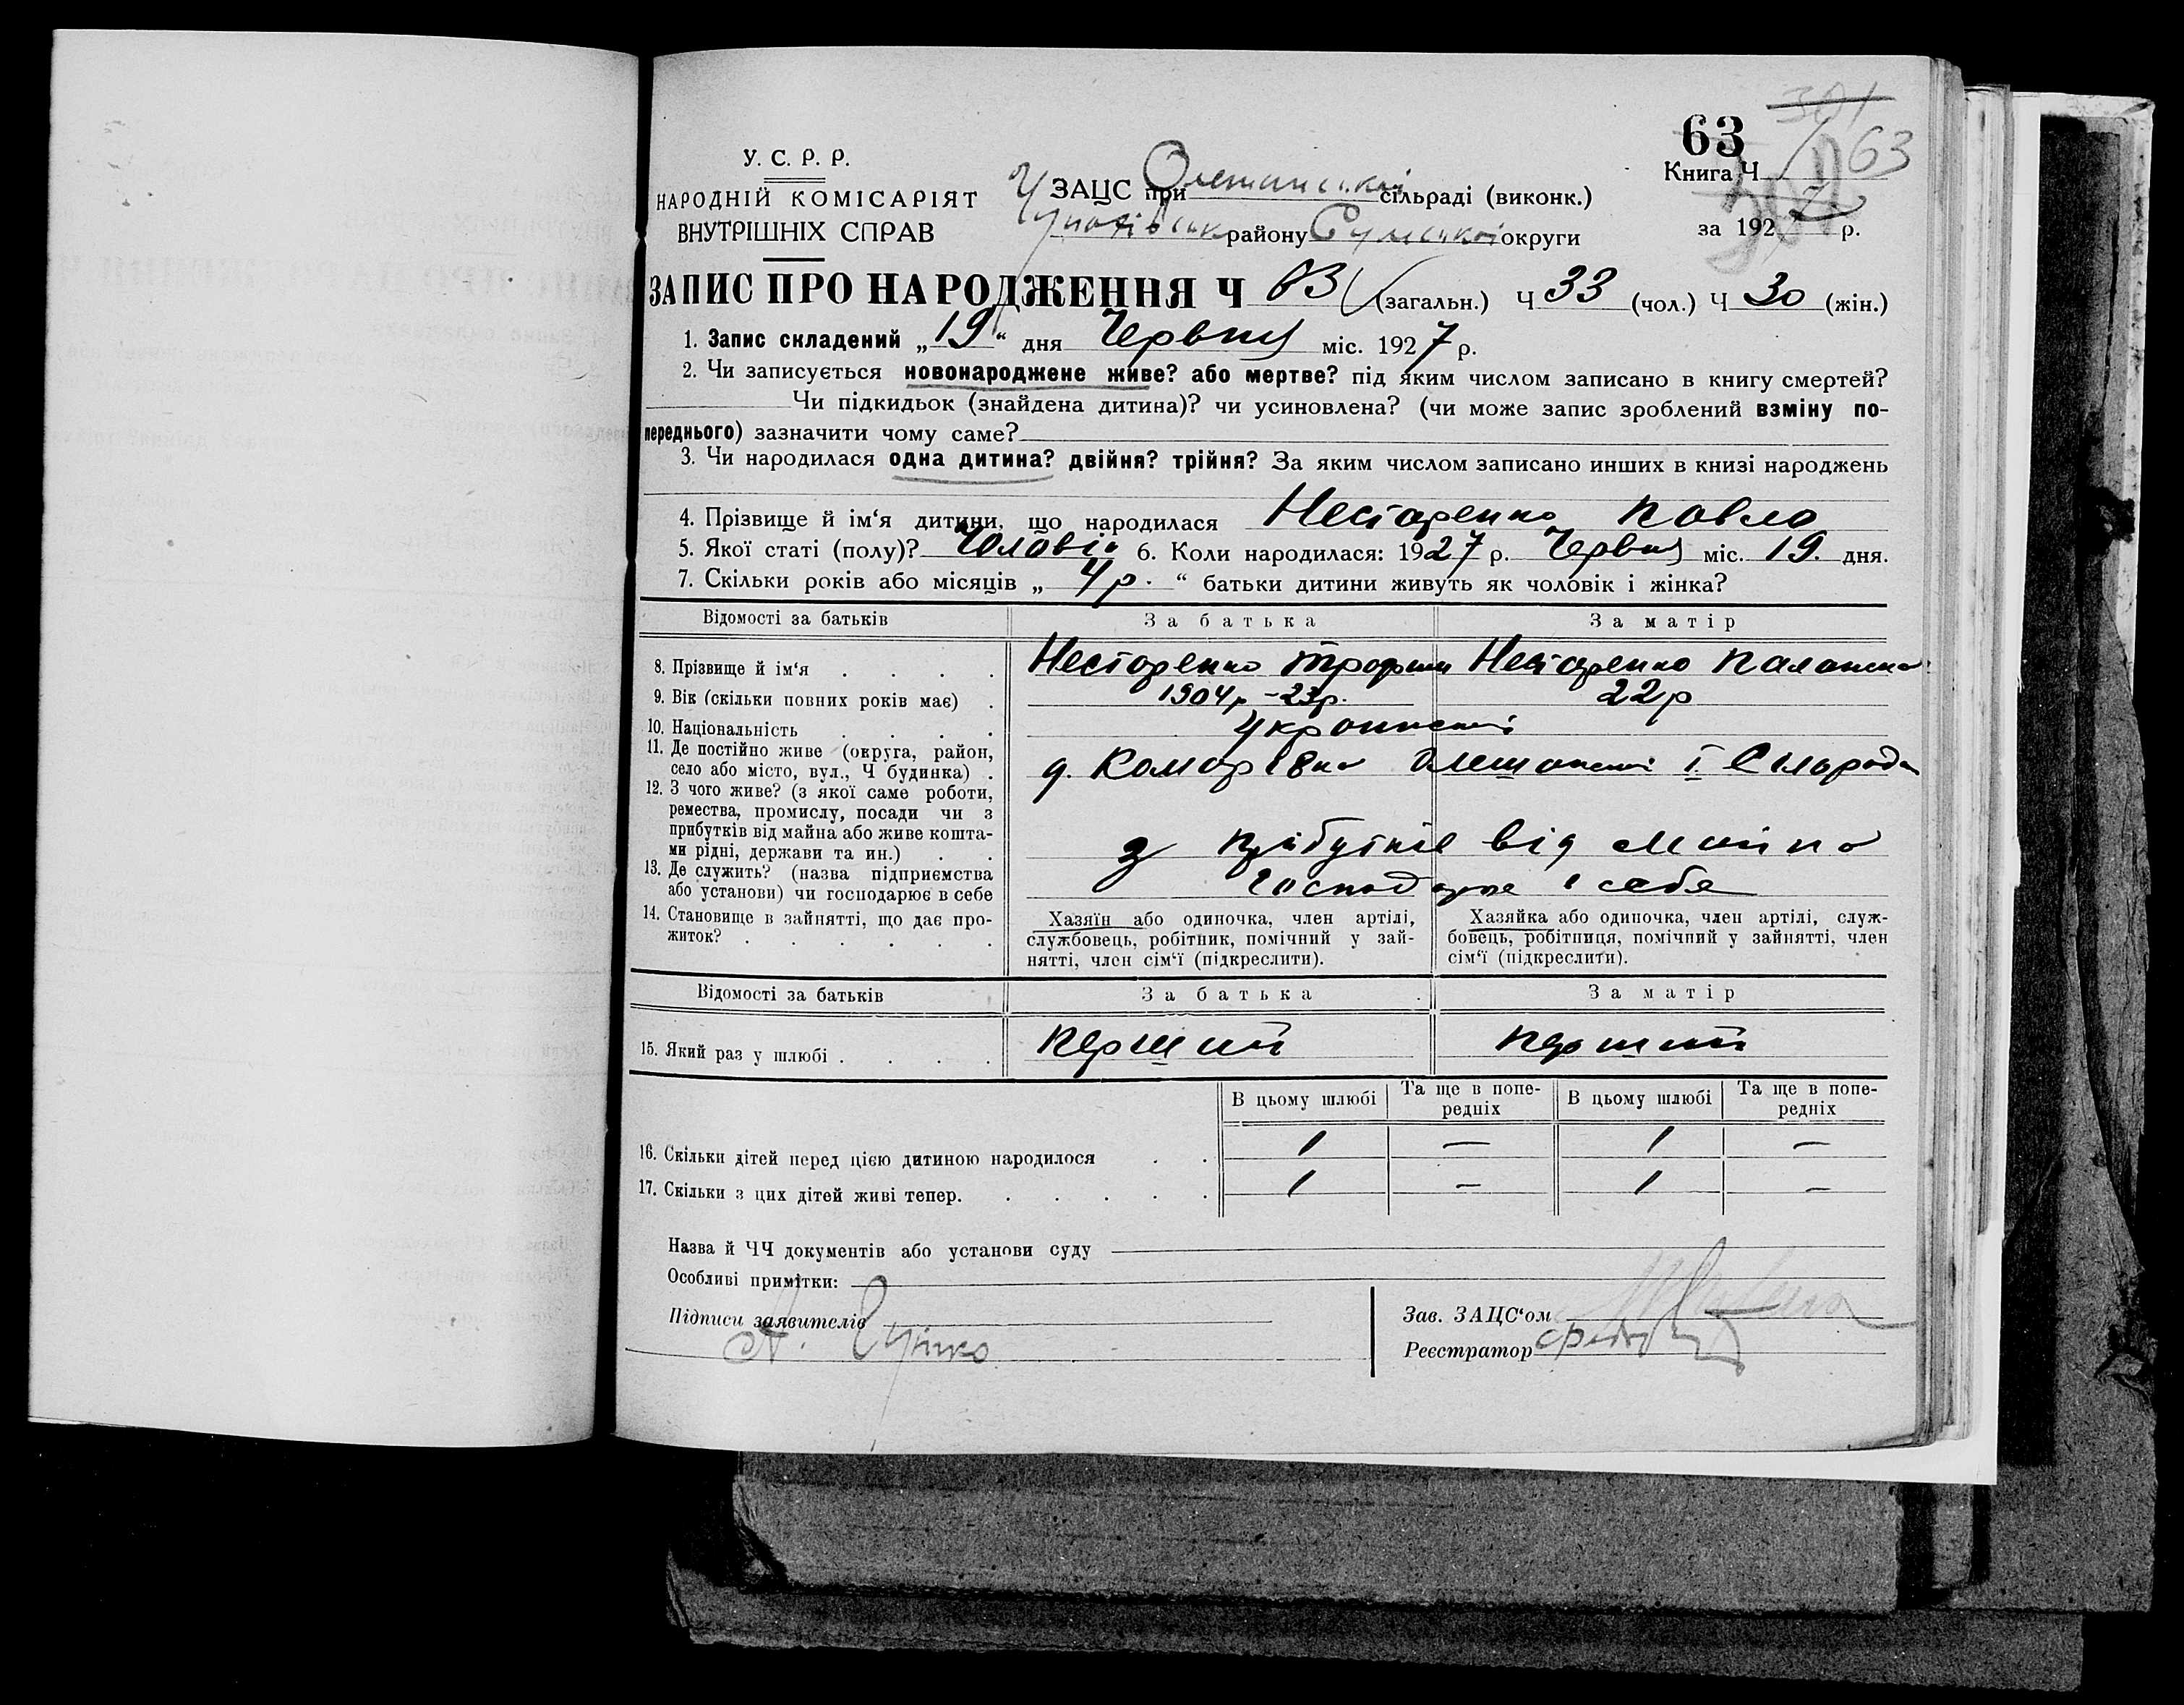 63
301
63
У. С. Р. Р.
НАРОДНІЙ КОМІСАРІЯТ
ВНУТРІШНІХ СПРАВ
ЗАЦС при сільраді (виконк.)
району Сумської округи
Книга Ч
за 1927 р.
ЗАПИС ПРО НАРОДЖЕННЯ Ч 63 (загальн.) Ч 33 (чол.) Ч 30 (жін.)
1. Запис складений „19“ дня Червня міс. 1927 р.
2. Чи записується новонароджене живе? або мертве? під яким числом записано в книгу смертей?
Чи підкидьок (знайдена дитина)? чи усиновлена? (чи може запис зроблений взміну по-
переднього) зазначити чому саме?
3. Чи народилася одна дитина? двійня? трійня? За яким числом записано инших в книзі народжень
4. Прізвище й ім‘я дитини, що народилася Нестеренко Павло
5. Якої статі (полу)? Чоловіч 6. Коли народилася: 1927 р. Червня міс. 19. дня.
7. Скільки років або місяців „ 4 р. “ батьки дитини живуть як чоловік і жінка?
Відомості за батьків За батька За матір
8. Прізвище й ім‘я Нестеренко Трофим Нестеренко
9. Вік (скільки повних років має) 1904 р – 23 р. 22 р
10. Національність
11. Де постійно живе (округа, район,
село або місто, вул., Ч будинка)
12. З чого живе? (з якої саме роботи,
ремества, промислу, посади чи з
прибутків від майна або живе кошта-
ми рідні, держави та ин.) з прибутків від майна
13. Де служить? (назва підприємства
або установи) чи господарює в себе господарює в себе
14. Становище в зайнятті, що дає про-
житок?
Хазяїн або одиночка, член артілі,
службовець, робітник, помічний у зай-
нятті, член сім‘ї (підкреслити).
Хазяйка або одиночка, член артілі, служ-
бовець, робітниця, помічний у зайнятті, член
сім‘ї (підкреслити).
Відомості за батьків За батька За матір
15. Який раз у шлюбі перший перший
В цьому шлюбі Та ще в попе-
редніх В цьому шлюбі Та ще в попе-
редніх
16. Скільки дітей перед цією дитиною народилося 1 — 1 —
17. Скільки з цих дітей живі тепер. 1 — 1 —
Назва й ЧЧ документів або установи суду
Особливі примітки:
Підписи заявителів
Зав. ЗАЦС‘ом
Реєстратор